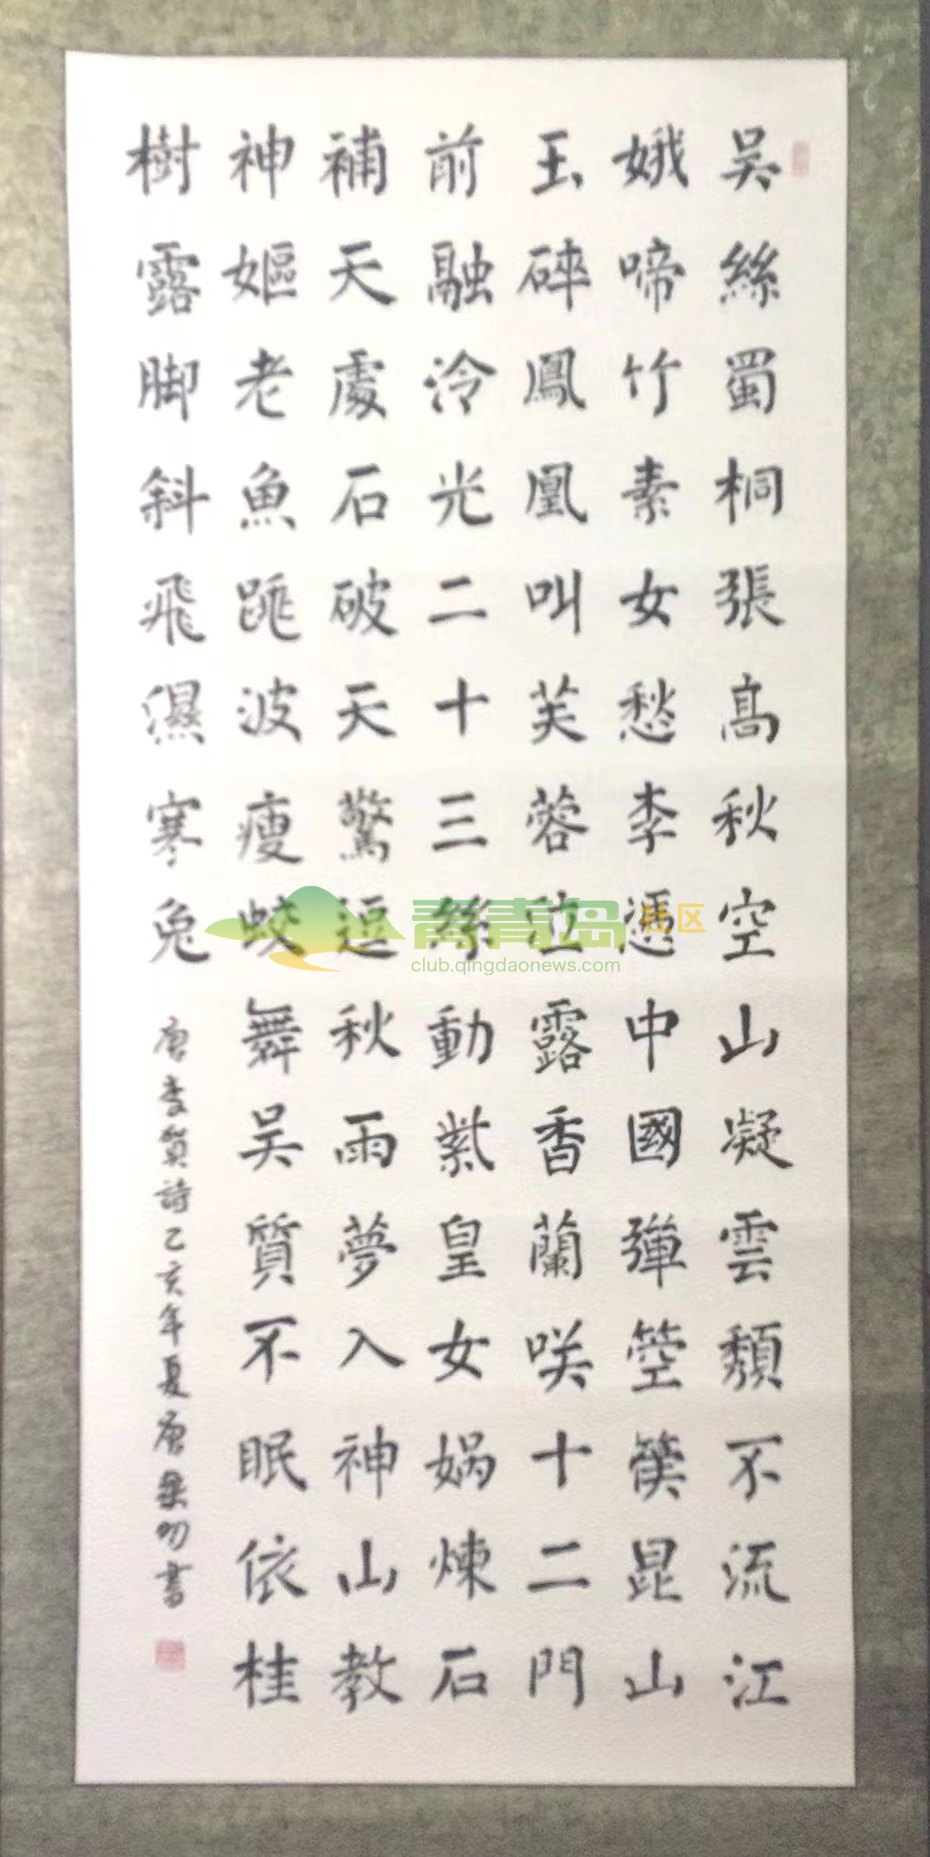 吳絲蜀桐張高秋空山凝雲頹不流江
娥啼竹素女愁李憑中國彈箜篌昆山
玉碎鳳凰叫芙蓉泣露香蘭咲十二門
前融冷光二十三絲動紫皇女媧煉石
補天處石破天驚逗秋雨夢入神山教
神嫗老魚跳波瘦蛟舞吳質不眠依桂
樹露脚斜飛濕寒兔
唐李賀詩乙亥年夏唐 書
青青岛社区
club.qingdaonews.com